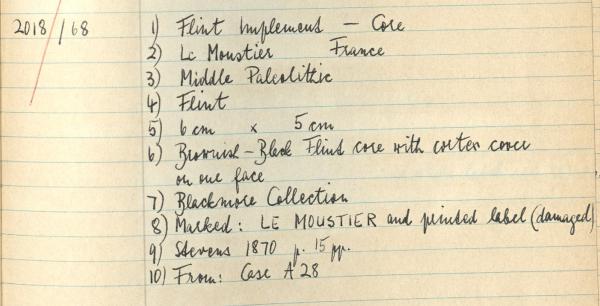 2018/68 1) Flint Implement — Core
2) Le Moustier France
3) Middle Paleolithic
4) Flint
5) 6 cm x 5 cm
6) Brownish-Black Flint core with cortex cover
on one face
7) Blackmore Collection
8) Marked: LE MOUSTIER and printed label (damaged)
9) Stevens 1870 p. 15 pp.
10) From: Case A 28